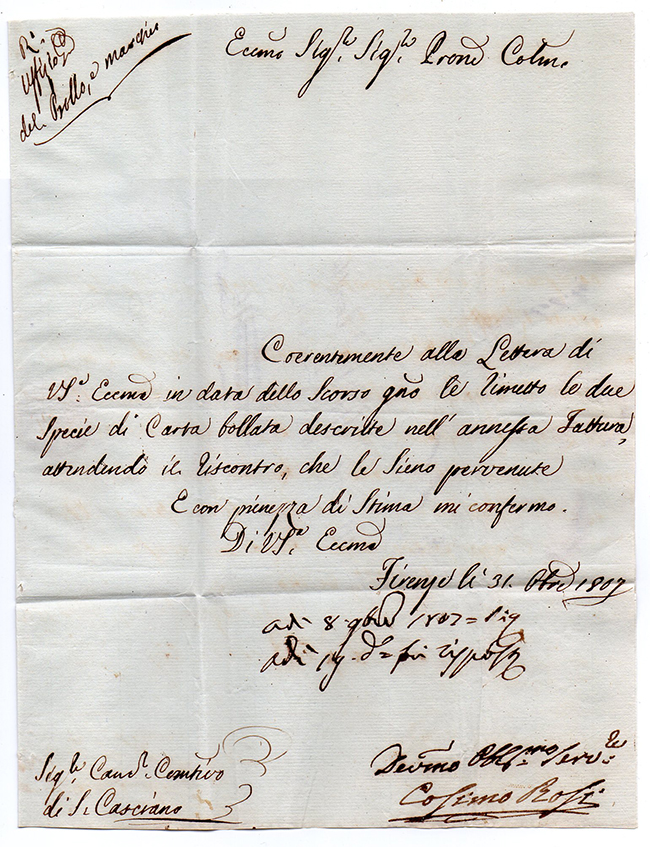 R.º
Uffizio
del Bollo, e marchio
Eccmo Sig.re Sig.re Prone Colmo
Coerentemente alla Lettera di
VS.a Eccma in data dello Scorso gno le rimetto le due
Specie di Carta bollata descritte nell' annessa Fattura,
attendendo il riscontro, che le Sieno pervenute
E con pienezza di Stima mi confermo.
Di VS.a Eccma
Firenze li 31. Obre 1807
adi 8 9bre 1807 =
adi 19 d.o =
Sig.re Canc.re Comtivo
di S. Casciano
Devmo Obb.mo Serv.re
Cosimo Rossi